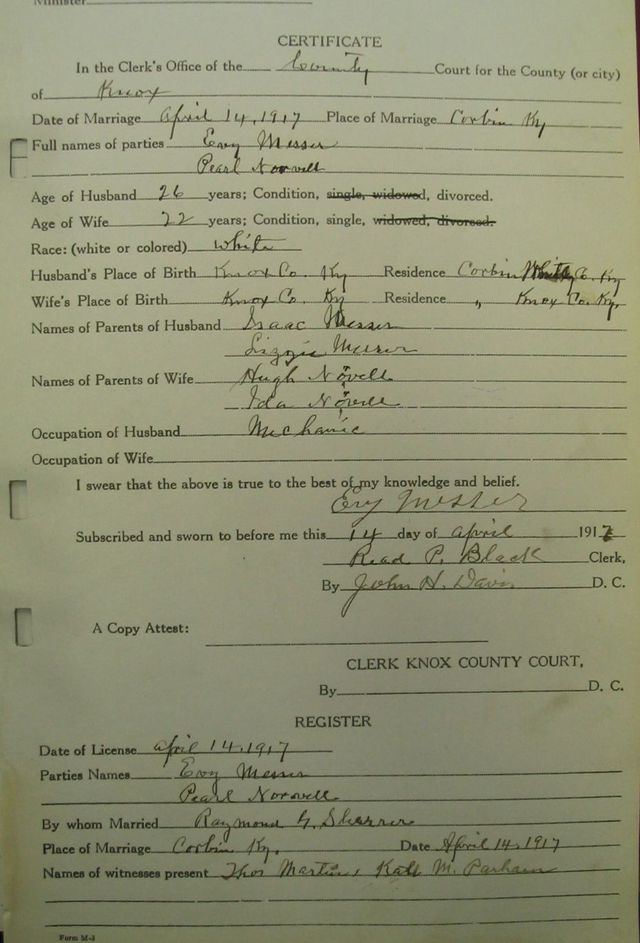 Minister
CERTIFICATE
In the Clerk's Office of the County Court for the County (or city)
of Knox
Date of Marriage April 14, 1917 Place of Marriage Corbin Ky
Full names of parties Evy Messer
Pearl Norvell
Age of Husband 26 years; Condition, single, widowed, divorced.
Age of Wife 22 years; Condition, single, widowed, divorced.
Race: (white or colored) white
Husband's Place of Birth Knox Co. Ky Residence Corbin Whitly Co. Ky
Wife's Place of Birth Knox Co. Ky Residence " Knox Co. Ky.
Names of Parents of Husband Isaac Messer
Lizzie Messer
Names of Parents of Wife Hugh Norvell
Ida Norvell
Occupation of Husband Mechanic
Occupation of Wife
I swear that the above is true to the best of my knowledge and belief.
Evy Messer
Subscribed and sworn to before me this 14 day of april 1917
Read P. Black Clerk,
By John H. Davis D. C.
A Copy Attest:
CLERK KNOX COUNTY COURT,
By D. C.
REGISTER
Date of License april 14, 1917
Parties Names Evy Messer
Pearl Norvell
By whom Married Raymond G. Sherrer
Place of Marriage Corbin Ky. Date April 14, 1917
Names of witnesses present Thos Martin, Kate M. Parham
Form M-3